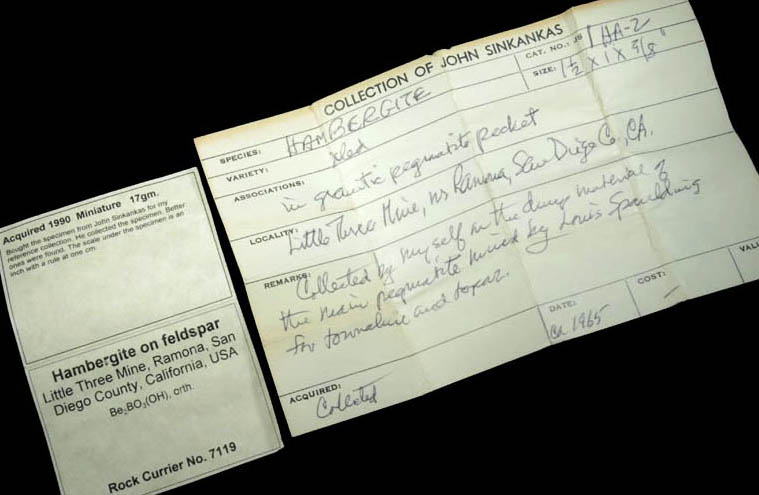 Acquired 1990 Miniature 17gm.
Bought the specimen from John Sinkankas for my
reference collection. He collected the specimen. Better
ones were found. The scale under the specimen is an
inch with a rule at one cm.
Hambergite on feldspar
Little Three Mine, Ramona, San
Diego County, California, USA
Be₂BO₃(OH), orth.
Rock Currier No. 7119
COLLECTION OF JOHN SINKANKAS
CAT. NO.: JS HA-2
SPECIES: HAMBERGITE
SIZE: 1½ x 1 x 3/8"
VARIETY: xled
ASSOCIATIONS: in granitic pegmatite pocket
LOCALITY: Little Three Mine, nr Ramona, San Diego Co., CA.
REMARKS: Collected by myself in the dump material of
the main pegmatite mined by Louis Spaulding
for tourmaline and topaz.
DATE: ca 1965
COST: –
VALU
ACQUIRED: Collected